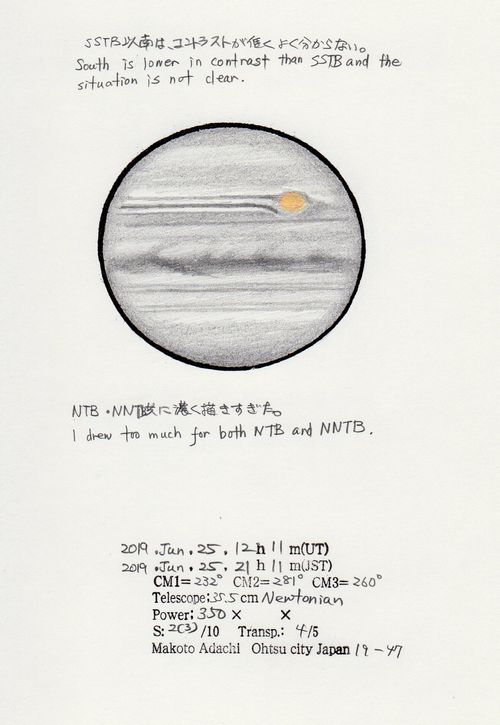 SSTB以南は、コントラストが低くよく分からない。
South is lower in contrast than SSTB and the
situation is not clear.
NTB・NNTB共に濃く描きすぎた。
I drew too much for both NTB and NNTB.
2019.Jun.25.12h 11 m(UT)
2019.Jun.25.21h 11 m(JST)
CM1=232° CM2=281° CM3=260°
Telescope:35.5cm Newtonian
Power:350× ×
S:2(3)/10 Transp.: 4/5
Makoto Adachi Ohtsu city Japan 19-47